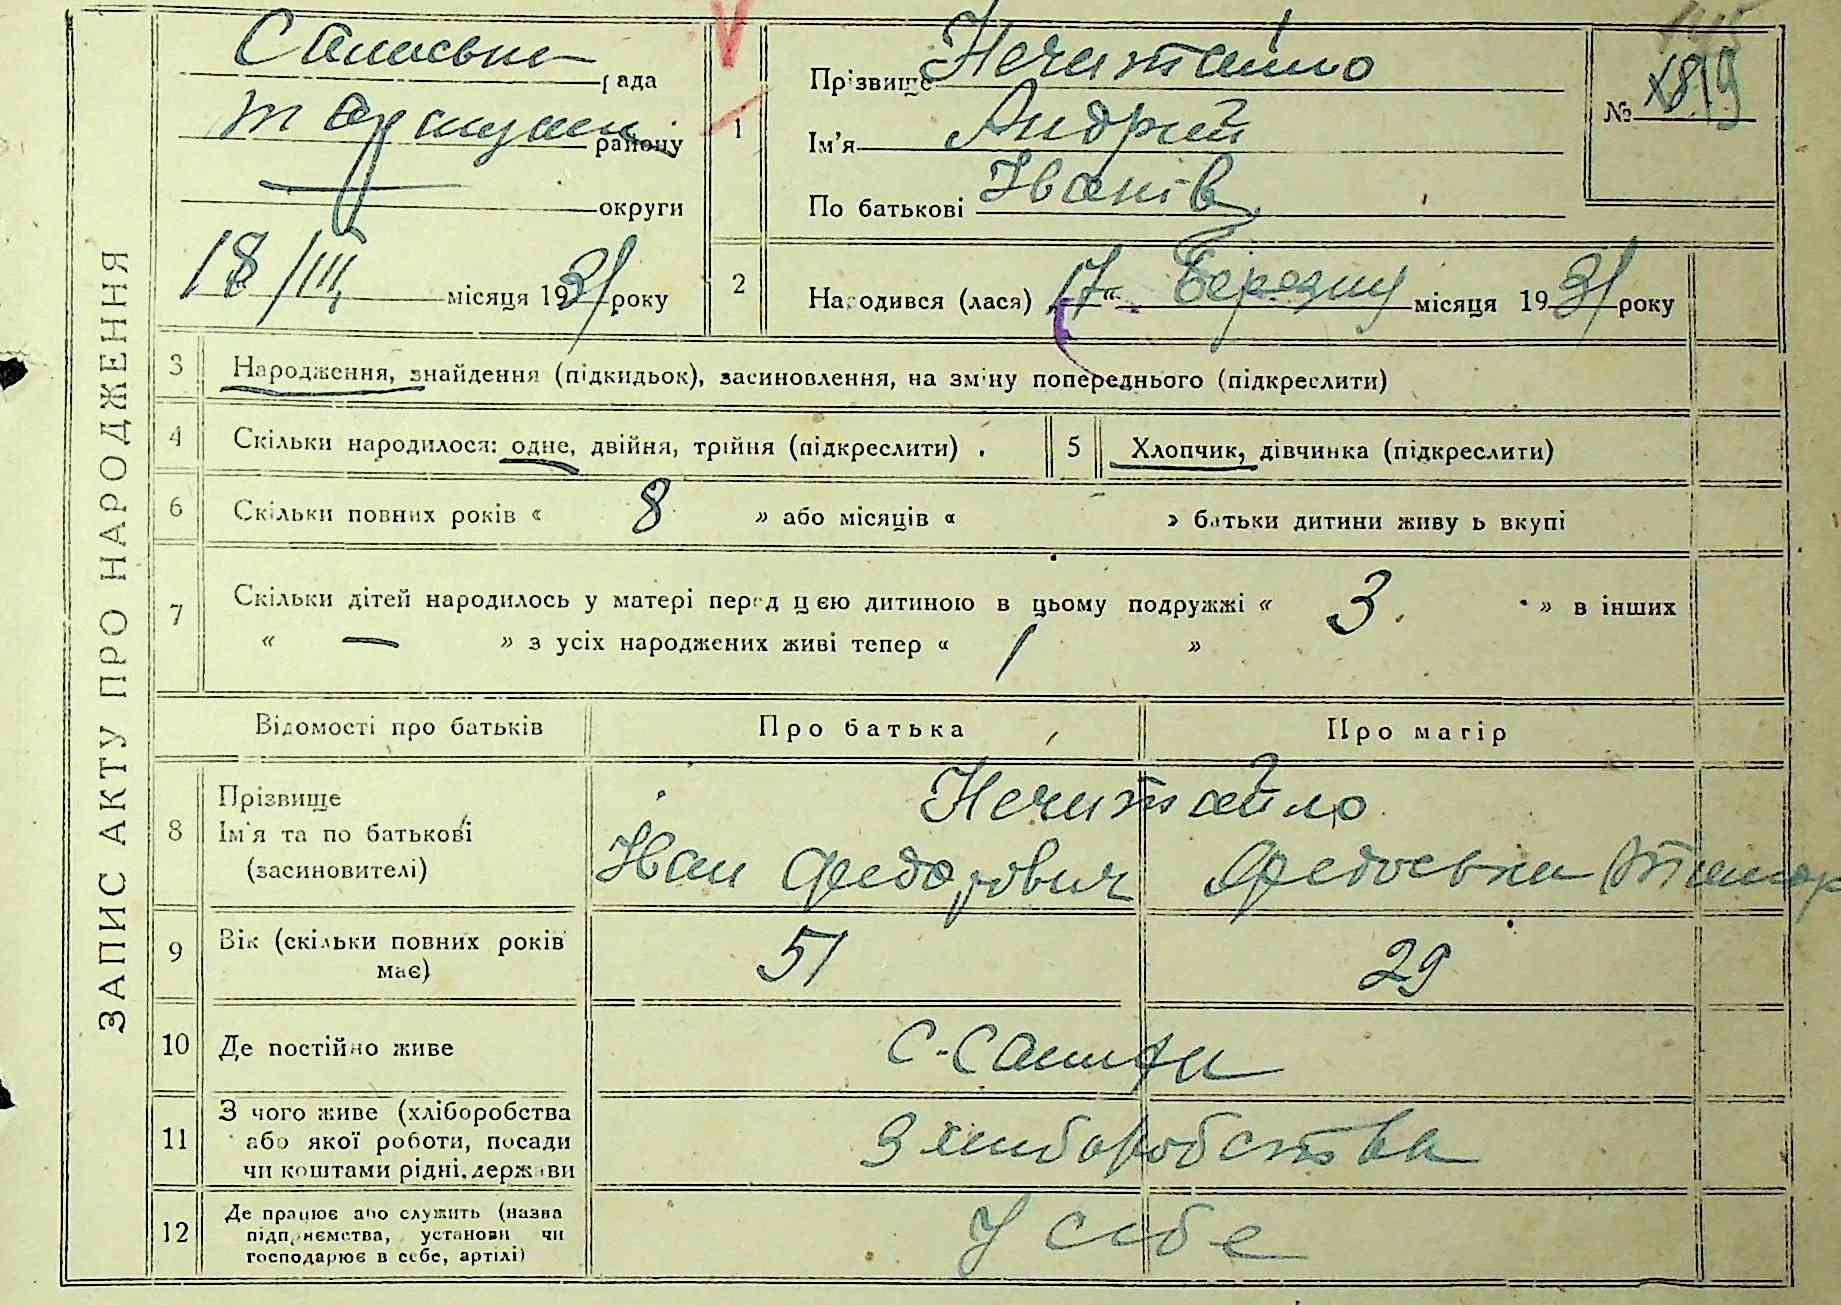 ЗАПИС АКТУ ПРО НАРОДЖЕННЯ
рада
району
округи
18/III місяця 1931 року
1
Прізвище Нечитайло
Ім'я Андрій
По батькові Іванів
№ 19
2
Народився (лася) 17 « Березня місяця 1931 року
3 Народження, знайдення (підкидьок), засиновлення, на зміну попереднього (підкреслити)
4 Скільки народилося: одне, двійня, трійня (підкреслити).
5 Хлопчик, дівчинка (підкреслити)
6 Скільки повних років « 8 » або місяців « » батьки дитини живуть вкупі
7 Скільки дітей народилось у матері перед цією дитиною в цьому подружжі « 3 » в інших
« — » з усіх народжених живі тепер « 1 »
Відомості про батьків Про батька Про матір
8 Прізвище Нечитайло
Ім'я та по батькові Іван Федорович Федоська Тимор
(засиновителі)
9 Вік (скільки повних років 51 29
має)
10 Де постійно живе
11 З чого живе (хліборобства З хліборобства
або якої роботи, посади
чи коштами рідні, держави
12 Де працює або служить (назва У себе
підприємства, установи чи
господарює в себе, артілі)